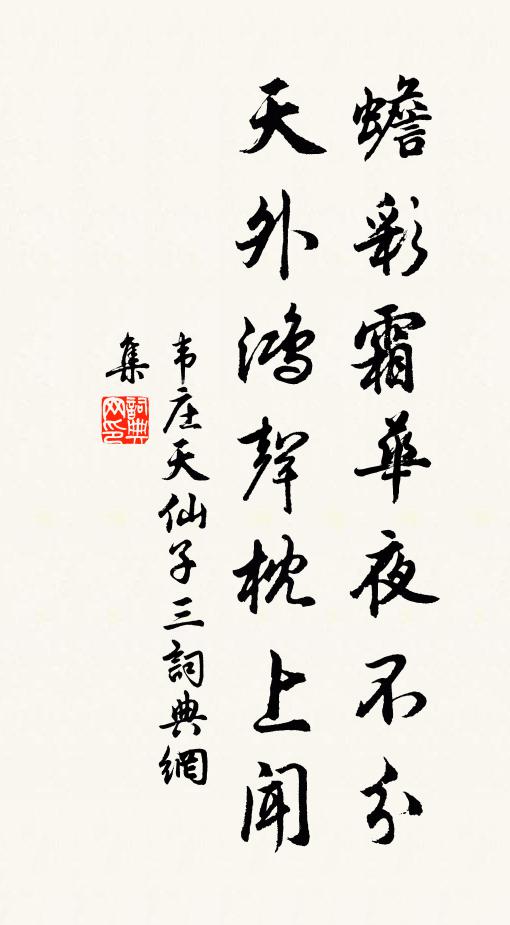 蟾彩霜華夜不分
天外鴻聲枕上聞
韦庄天仙子三詞典網
集
詞典
网印